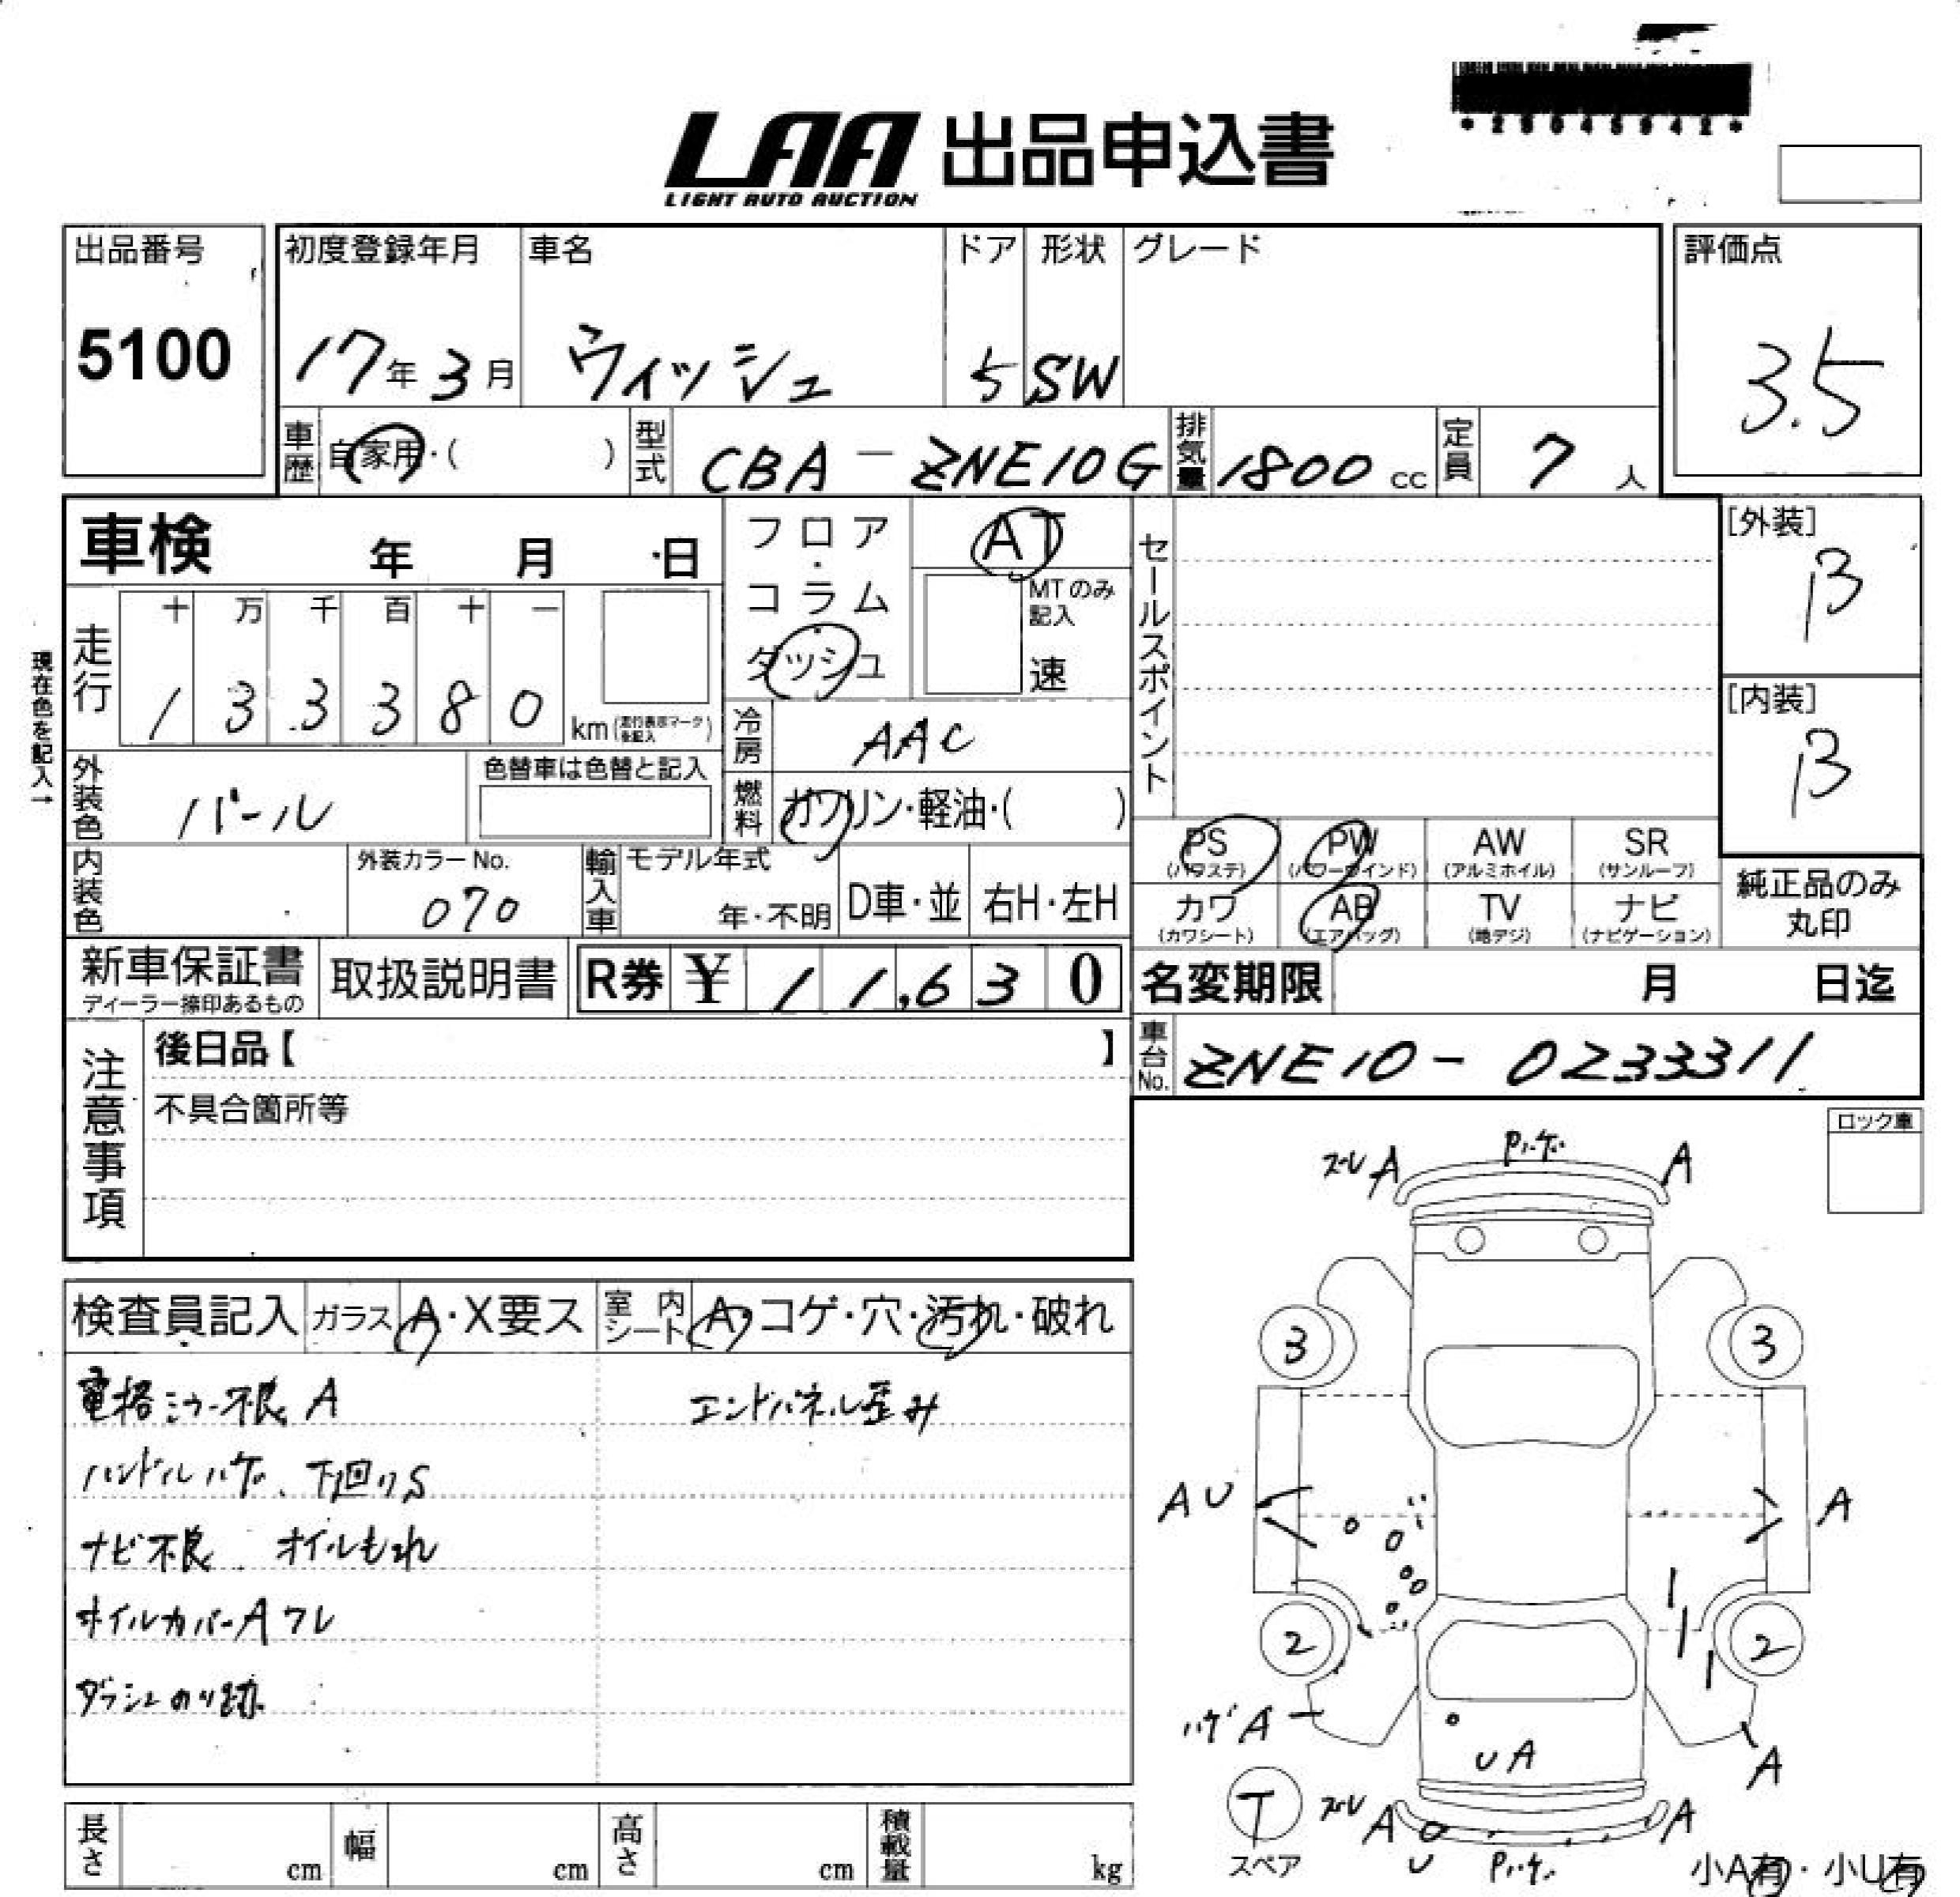 *25045942*
LAA 出品申込書
LIGHT AUTO AUCTION
出品番号
5100
初度登録年月
17年3月
車名
ウィッシュ
ドア
5
形状
SW
グレード
評価点
3.5
車歴
自家用・( )
型式
CBA-ZNE10G
排気量
1800cc
定員
7人
車検 年 月 日
フロア・コラム・ダッシュ
AT
MTのみ記入
速
セールスポイント
[外装]
B
[内装]
B
現在色を記入→
走行
十 万 千 百 十 一
1 3 3 3 8 0
km(走行表示マークを記入)
冷房
AAC
外装色
パール
色替車は色替と記入
燃料
ガソリン・軽油・( )
内装色
外装カラーNo.
070
輸入車
モデル年式
年・不明
D車・並
右H・左H
PS
(パワステ)
PW
(パワーウインド)
AW
(アルミホイル)
SR
(サンルーフ)
カワ
(カワシート)
AB
(エアバッグ)
TV
(地デジ)
ナビ
(ナビゲーション)
純正品のみ
丸印
新車保証書
ディーラー捺印あるもの
取扱説明書
R券 ¥ 11,630
名変期限 月 日迄
車台No.
ZNE10-0233311
注意事項
後日品【 】
不具合箇所等
ロック車
検査員記入
ガラス A・X要ス
室内シート A・コゲ・穴・汚れ・破れ
電格ミラー不良 A
エンドパネル歪み
ハンドルハゲ、下回りS
ナビ不良 オイルもれ
ホイルカバーAワレ
ダッシュのり跡
ズレ A
ハゲ
A
3
3
AU
A
2
2
ハゲA
UA
A
T
スペア
ズレ A
U
A
小A有・小U有
長さ cm
幅 cm
高さ cm
積載量 kg